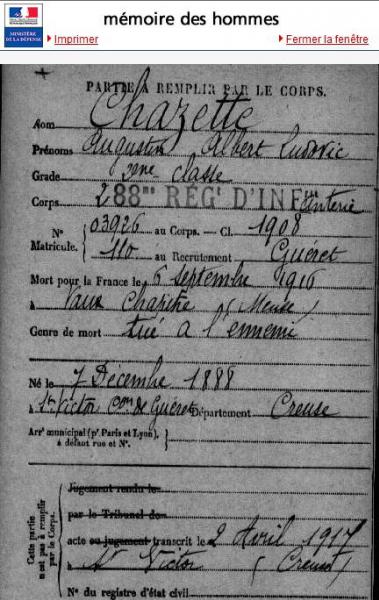 MINISTÈRE DE LA DÉFENSE
mémoire des hommes
Imprimer
Fermer la fenêtre
PARTIE A REMPLIR PAR LE CORPS.
Nom Chazette
Prénoms Augustin Albert Ludovic
Grade 2me classe
Corps 288me RÉGt D'INFanterie
N° Matricule. { 03926 au Corps. — Cl. 1908
110 au Recrutement Guéret
Mort pour la France le 6 septembre 1916
à Vaux Chapitre (Meuse)
Genre de mort tué à l'ennemi
Né le 7 Décembre 1888
à St Victor con de Guéret Département Creuse
Arrt municipal (pr Paris et Lyon), à défaut rue et N°.
Cette partie n'est pas à remplir par le Corps.
Jugement rendu le
par le Tribunal de
acte ou jugement transcrit le 2 Avril 1917
à St Victor (Creuse)
N° du registre d'état civil